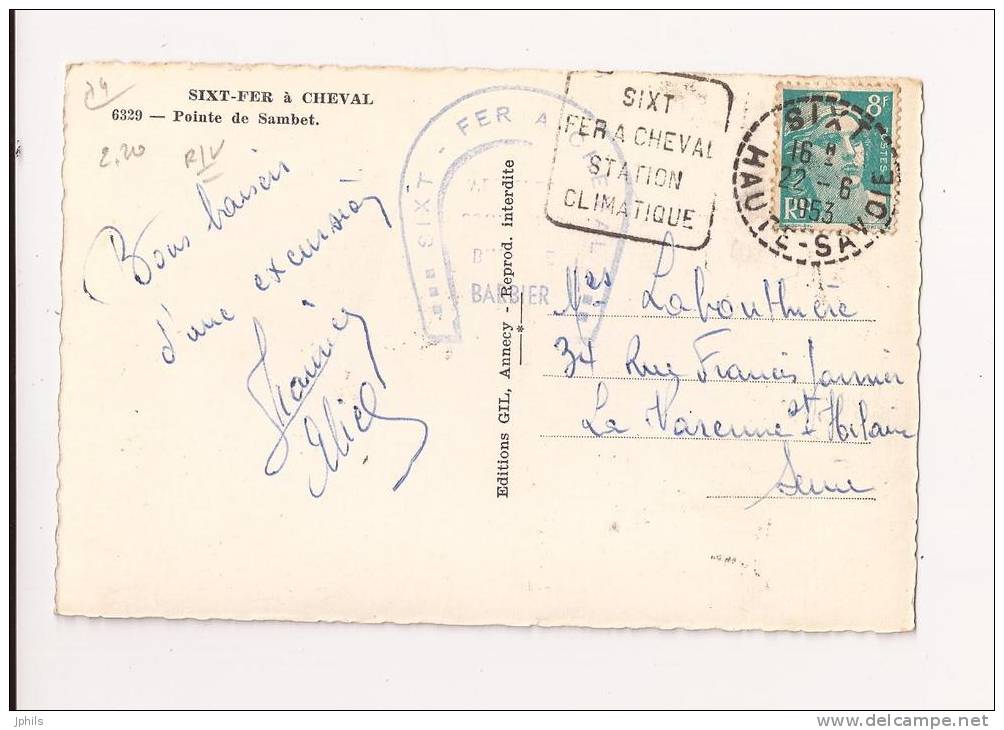 SIXT-FER à CHEVAL
6329 — Pointe de Sambet.
74
2,20
R/V
Bons baisers
d'une excursion
SIXT - FER A CHEVAL
BARBIER
SIXT
FER A CHEVAL
STATION
CLIMATIQUE
8F
POSTES
RF
SIXT
16 H
22 - 6
1953
HAUTE-SAVOIE
Editions GIL, Annecy - Reprod. interdite
Mes Labouthière
34 Rue Francis Garnier
La Varenne St Hilaire
Seine
jphils
www.delcampe.net